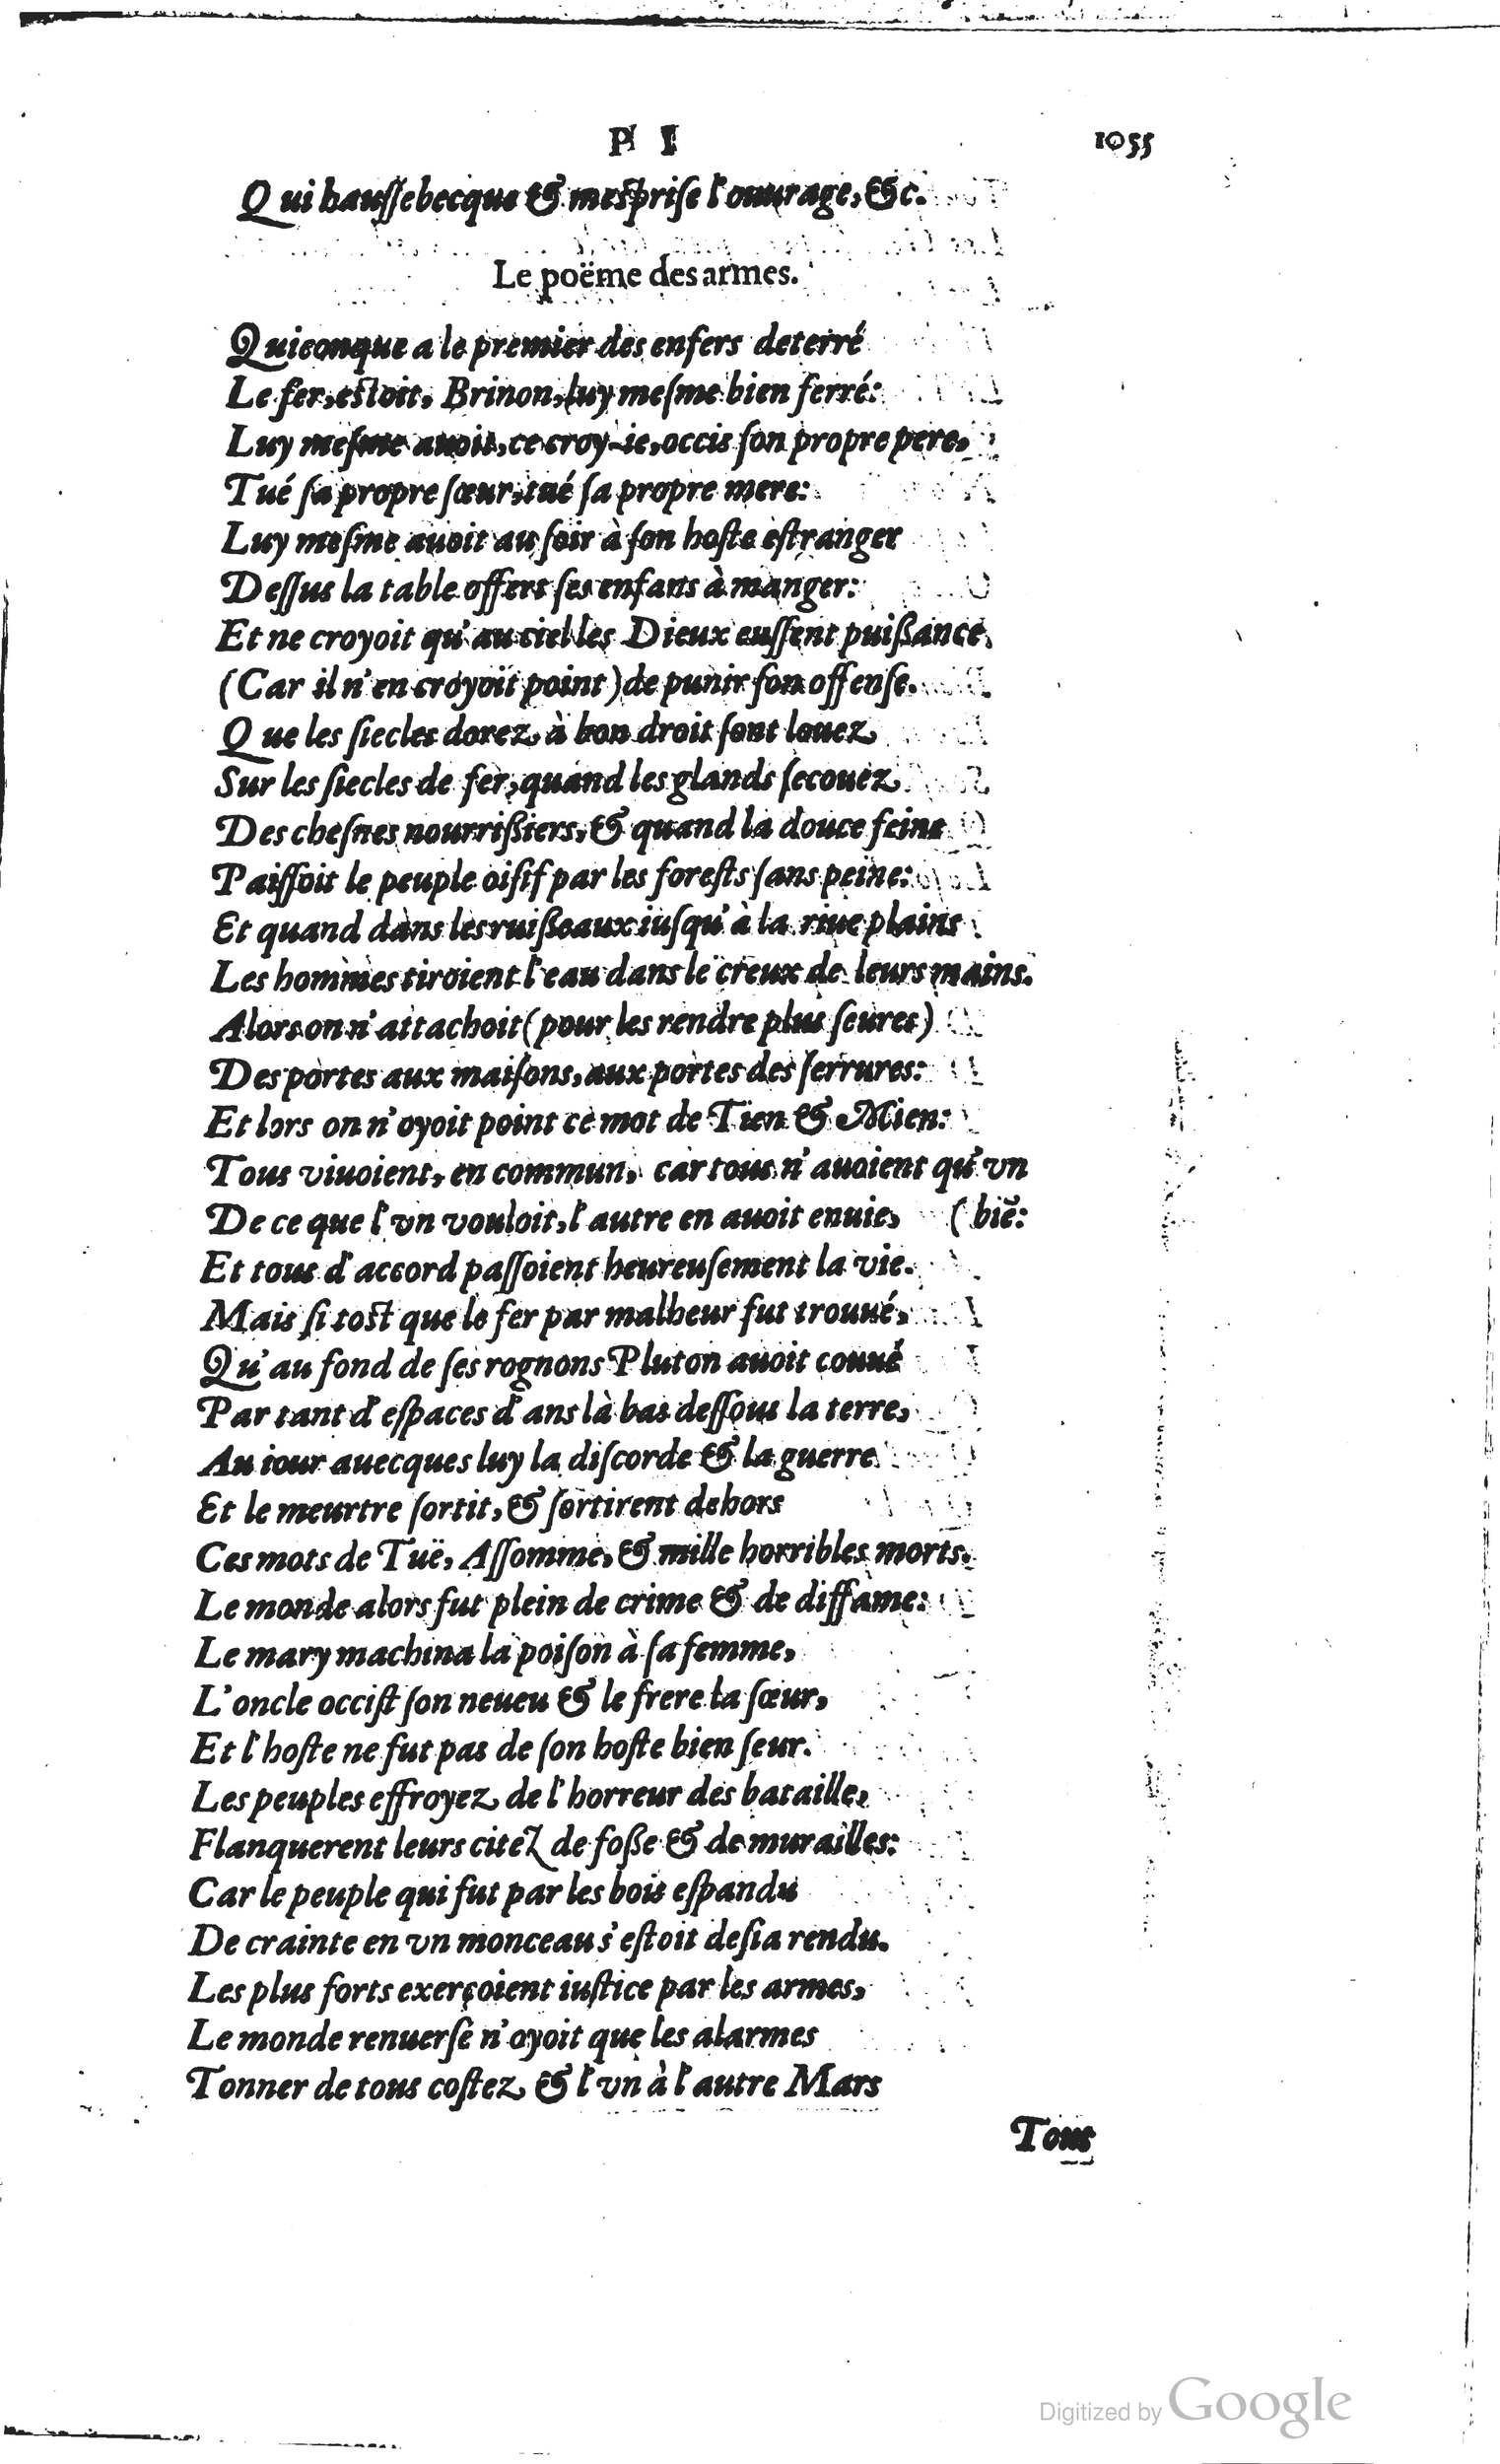 P I 1055
Qui hauſſebecque & meſpriſe l'ouurage, &c.
Le poëme des armes.
Quiconque a le premier des enfers deterré
Le fer, eſtoit, Brinon, luy meſme bien ferré:
Luy meſme auoit, ce croy-ie, occis ſon propre pere,
Tué ſa propre ſœur, tué ſa propre mere:
Luy meſme auoit au ſoir à ſon hoſte eſtranger
Deſſus la table offert ſes enfans à manger:
Et ne croyoit qu'au ciel les Dieux euſſent puißance,
(Car il n'en croyoit point) de punir ſon offenſe.
Que les ſiecles dorez à bon droit ſont louez
Sur les ſiecles de fer, quand les glands ſecouez
Des cheſnes nourrißiers, & quand la douce feine
Paiſſoit le peuple oiſif par les foreſts ſans peine:
Et quand dans les ruißeaux iuſqu'à la riue plains
Les hommes tiroient l'eau dans le creux de leurs mains.
Alors on n'attachoit (pour les rendre plus ſeures)
Des portes aux maiſons, aux portes des ſerrures:
Et lors on n'oyoit point ce mot de Tien & Mien:
Tous viuoient, en commun, car tous n'auoient qu'vn
De ce que l'vn vouloit, l'autre en auoit enuie, (biẽ:
Et tous d'accord paſſoient heureuſement la vie.
Mais ſi toſt que le fer par malheur fut trouué,
Qu'au fond de ſes rognons Pluton auoit couué
Par tant d'eſpaces d'ans là bas deſſous la terre,
Au iour auecques luy la diſcorde & la guerre
Et le meurtre ſortit, & ſortirent dehors
Ces mots de Tuë, Aſſomme, & mille horribles morts.
Le monde alors fut plein de crime & de diffame:
Le mary machina la poiſon à ſa femme,
L'oncle occiſt ſon neueu & le frere la ſœur,
Et l'hoſte ne fut pas de ſon hoſte bien ſeur.
Les peuples effroyez de l'horreur des bataille,
Flanquerent leurs citez de foße & de murailles:
Car le peuple qui fut par les bois eſpandu
De crainte en vn monceau s'eſtoit deſia rendu.
Les plus forts exerçoient iuſtice par les armes,
Le monde renuerſé n'oyoit que les alarmes
Tonner de tous coſtez & l'vn à l'autre Mars
Tous
Digitized by Google